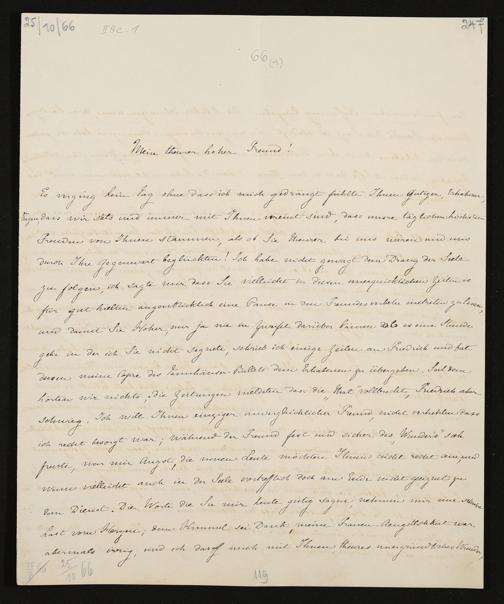 25/10/66 II B c - 1 247
66 (1)
Mein theurer hoher Freund!
Es verging kein Tag ohne dass ich mich gedrängt fühlte Ihnen Gütiger, Erhabener,
sagen, dass wir stets und immer mit Ihnen vereint sind dass unsre täglichen höchsten
Freuden von Ihnen stammen, als ob Sie theurer bei uns wären und uns
durch Ihre Gegenwart beglückten! Ich habe nicht gewagt dem Drang der Seele
zu folgen, ich sagte mir dass Sie vielleicht in diesen unerquicklichen Zeiten es
für gut hielten augenblicklich eine Pause in den Freundesverkehr eintreten zu lassen,
und damit Sie Hoher, nur ja nie in Zweifel darüber kämen als es eine Stunde
gebe in der ich Sie nicht segnete, schrieb ich einige Zeilen an Friedrich und bat
diesen meine Copie des Tannhäuser-Ballets dem Erhabenen zu übergeben. Seitdem
hörten wir nichts; die Zeitungen meldeten dass die "That" vollbracht, Friedrich aber
schwieg. Ich will Ihnen einziger unvergleichlicher Freund, nicht verhehlen dass
ich recht besorgt war; während der Freund fest und sicher des "Wunders" sich
freute, war mir Angst, die neuen Leute möchten Ihnen nicht recht sein, und
wenn vielleicht auch in der Seele vortrefflich doch am Ende nicht geeignet zu
dem Dienst. Die Worte die Sie mir heute gütig sagen, nehmen mir eine schwere
Last vom Herzen; dem Himmel sei Dank, meine Frauen-Aengstlichkeit war
abermals irrig, und ich darf mich mit Ihnen theures unergründliches Wunder,
25/10 66
119